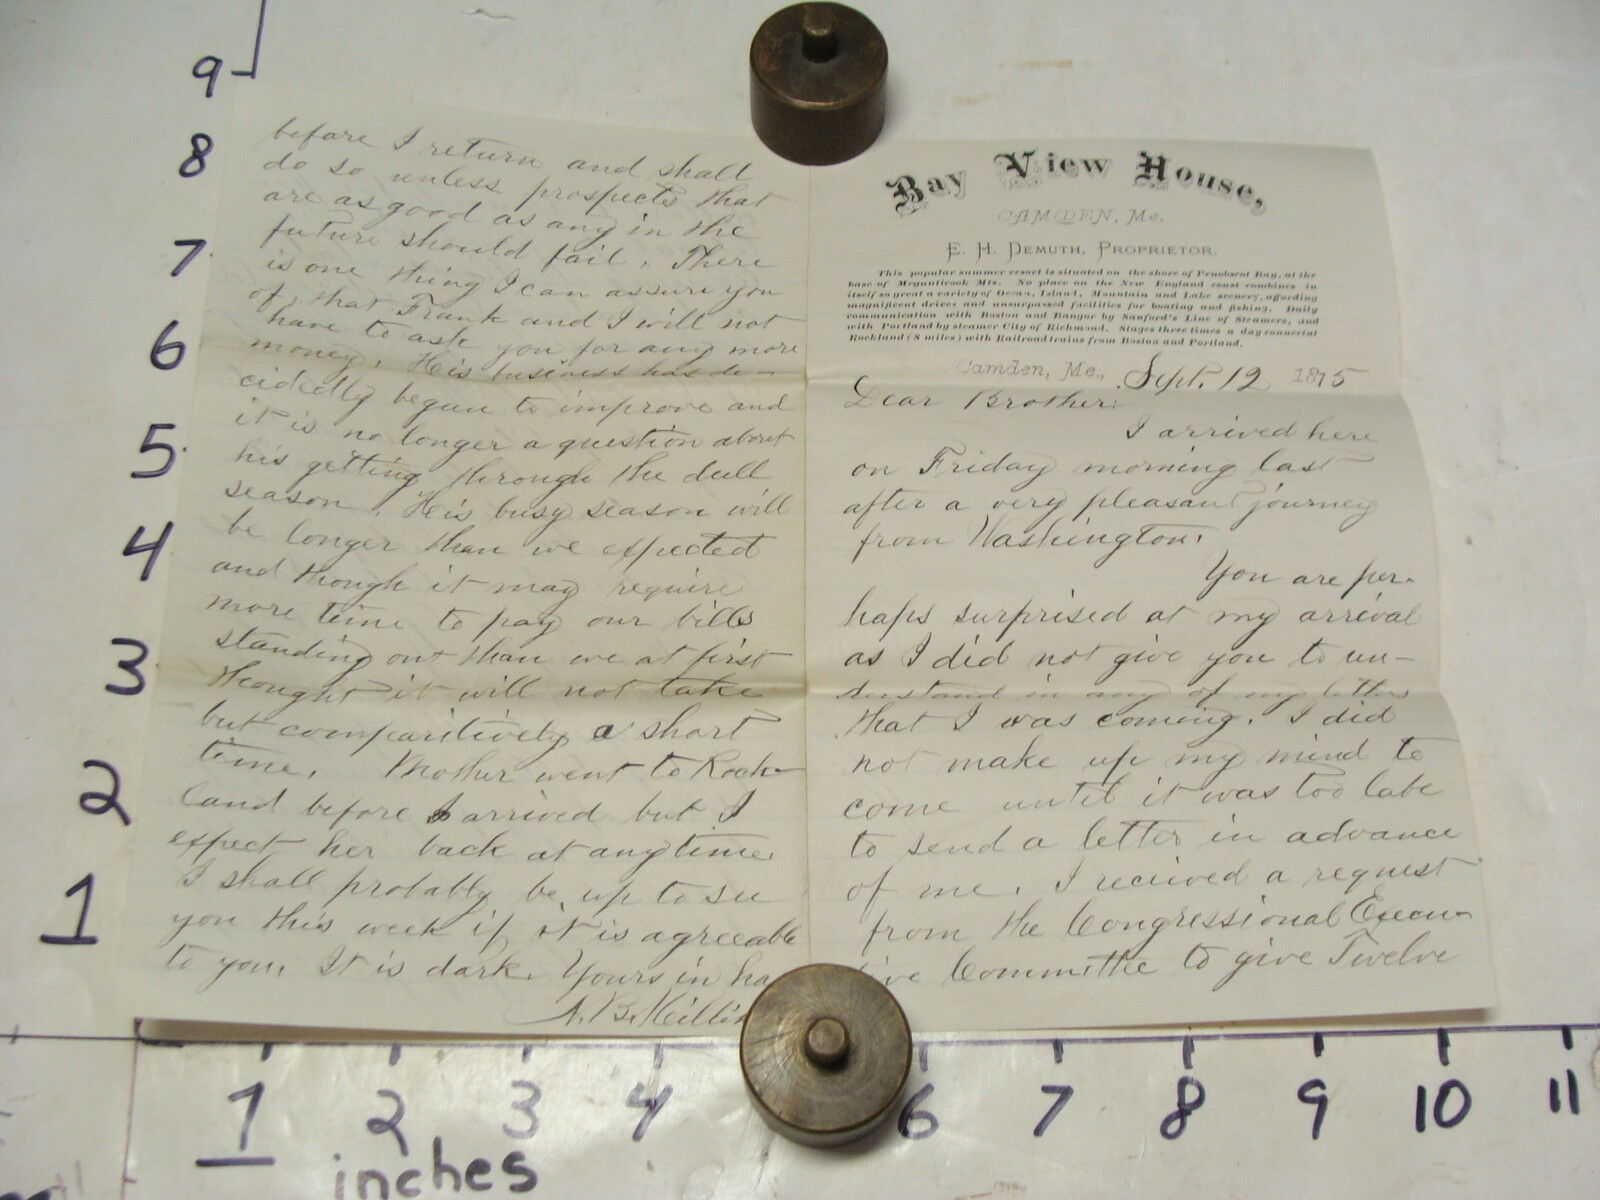 before I return and shall
do so unless prospects that
are as good as any in the
future should fail. There
is one thing I can assure you
of, that Frank and I will not
have to ask you for any more
money. His business has de-
cidedly began to improve and
it is no longer a question about
his getting through the dull
season. His busy season will
be longer than we expected
and though it may require
more time to pay our bills
standing out than we at first
thought it will not take
but comparitively a short
time. Mother went to Rock-
land before I arrived but I
expect her back at any time.
I shall probably be up to see
you this week if it is agreeable
to you. It is dark. Yours in ha
A. B.
Bay View House,
CAMDEN, Me.
E. H. DEMUTH, PROPRIETOR.
This popular summer resort is situated on the shore of Penobscot Bay, at the
base of Megunticook Mts. No place on the New England coast combines in
itself so great a variety of Ocean, Island, Mountain and Lake scenery, affording
magnificent drives and unsurpassed facilities for boating and fishing. Daily
communication with Boston and Bangor by Sanford's Line of Steamers, and
with Portland by steamer City of Richmond. Stages three times a day connect at
Rockland (8 miles) with Railroad trains from Boston and Portland.
Camden, Me., Sept. 12 1875
Dear Brother:
I arrived here
on Friday morning last
after a very pleasant journey
from Washington.
You are per-
haps surprised at my arrival
as I did not give you to un-
derstand in any of my letters
that I was coming. I did
not make up my mind to
come until it was too late
to send a letter in advance
of me. I received a request
from the Congressional Execu-
tive Committee to give Twelve
9
8
7
6
5
4
3
2
1
1 2 3 4 6 7 8 9 10 11
inches